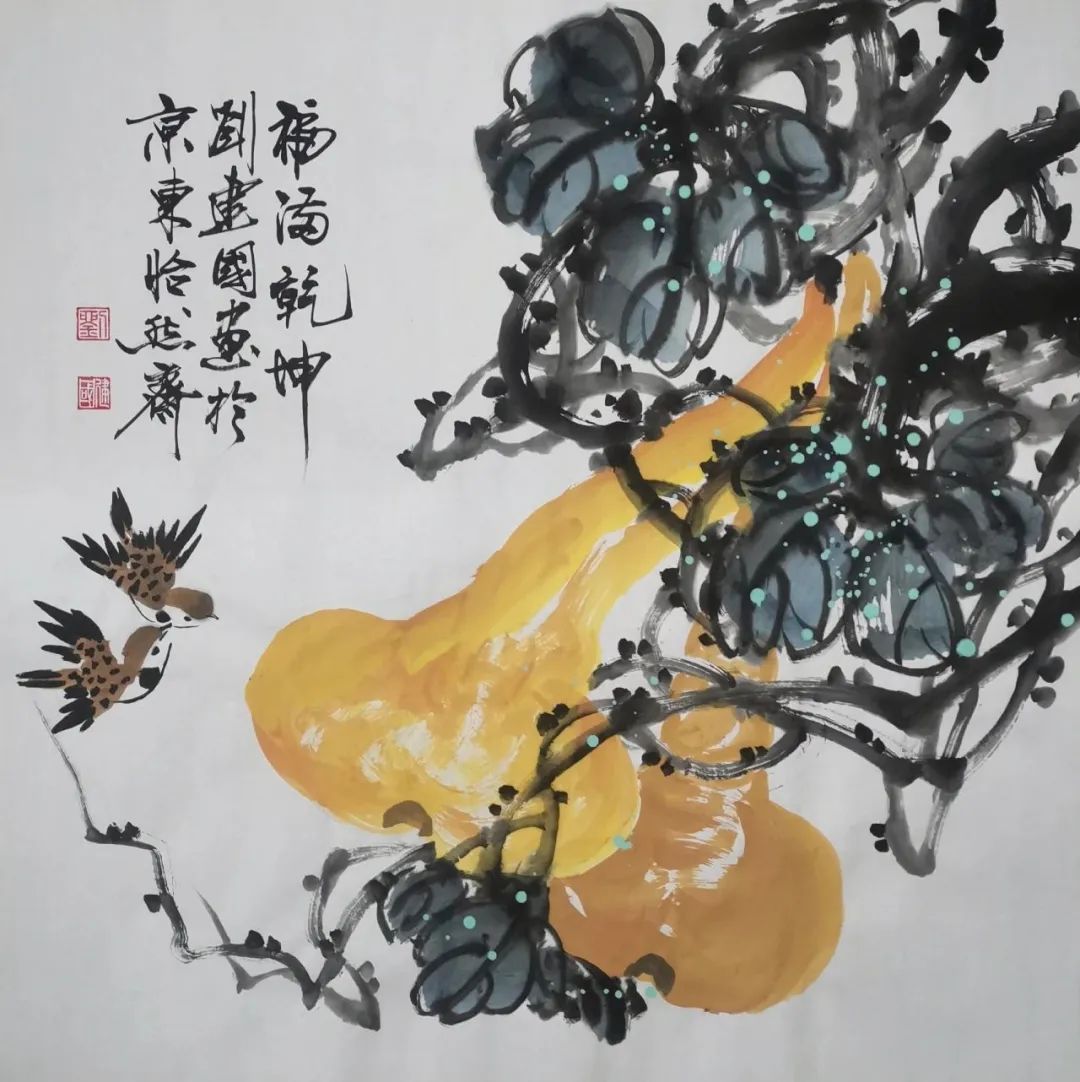 福满乾坤
劉建國画於
京東怡然齋
劉
建國